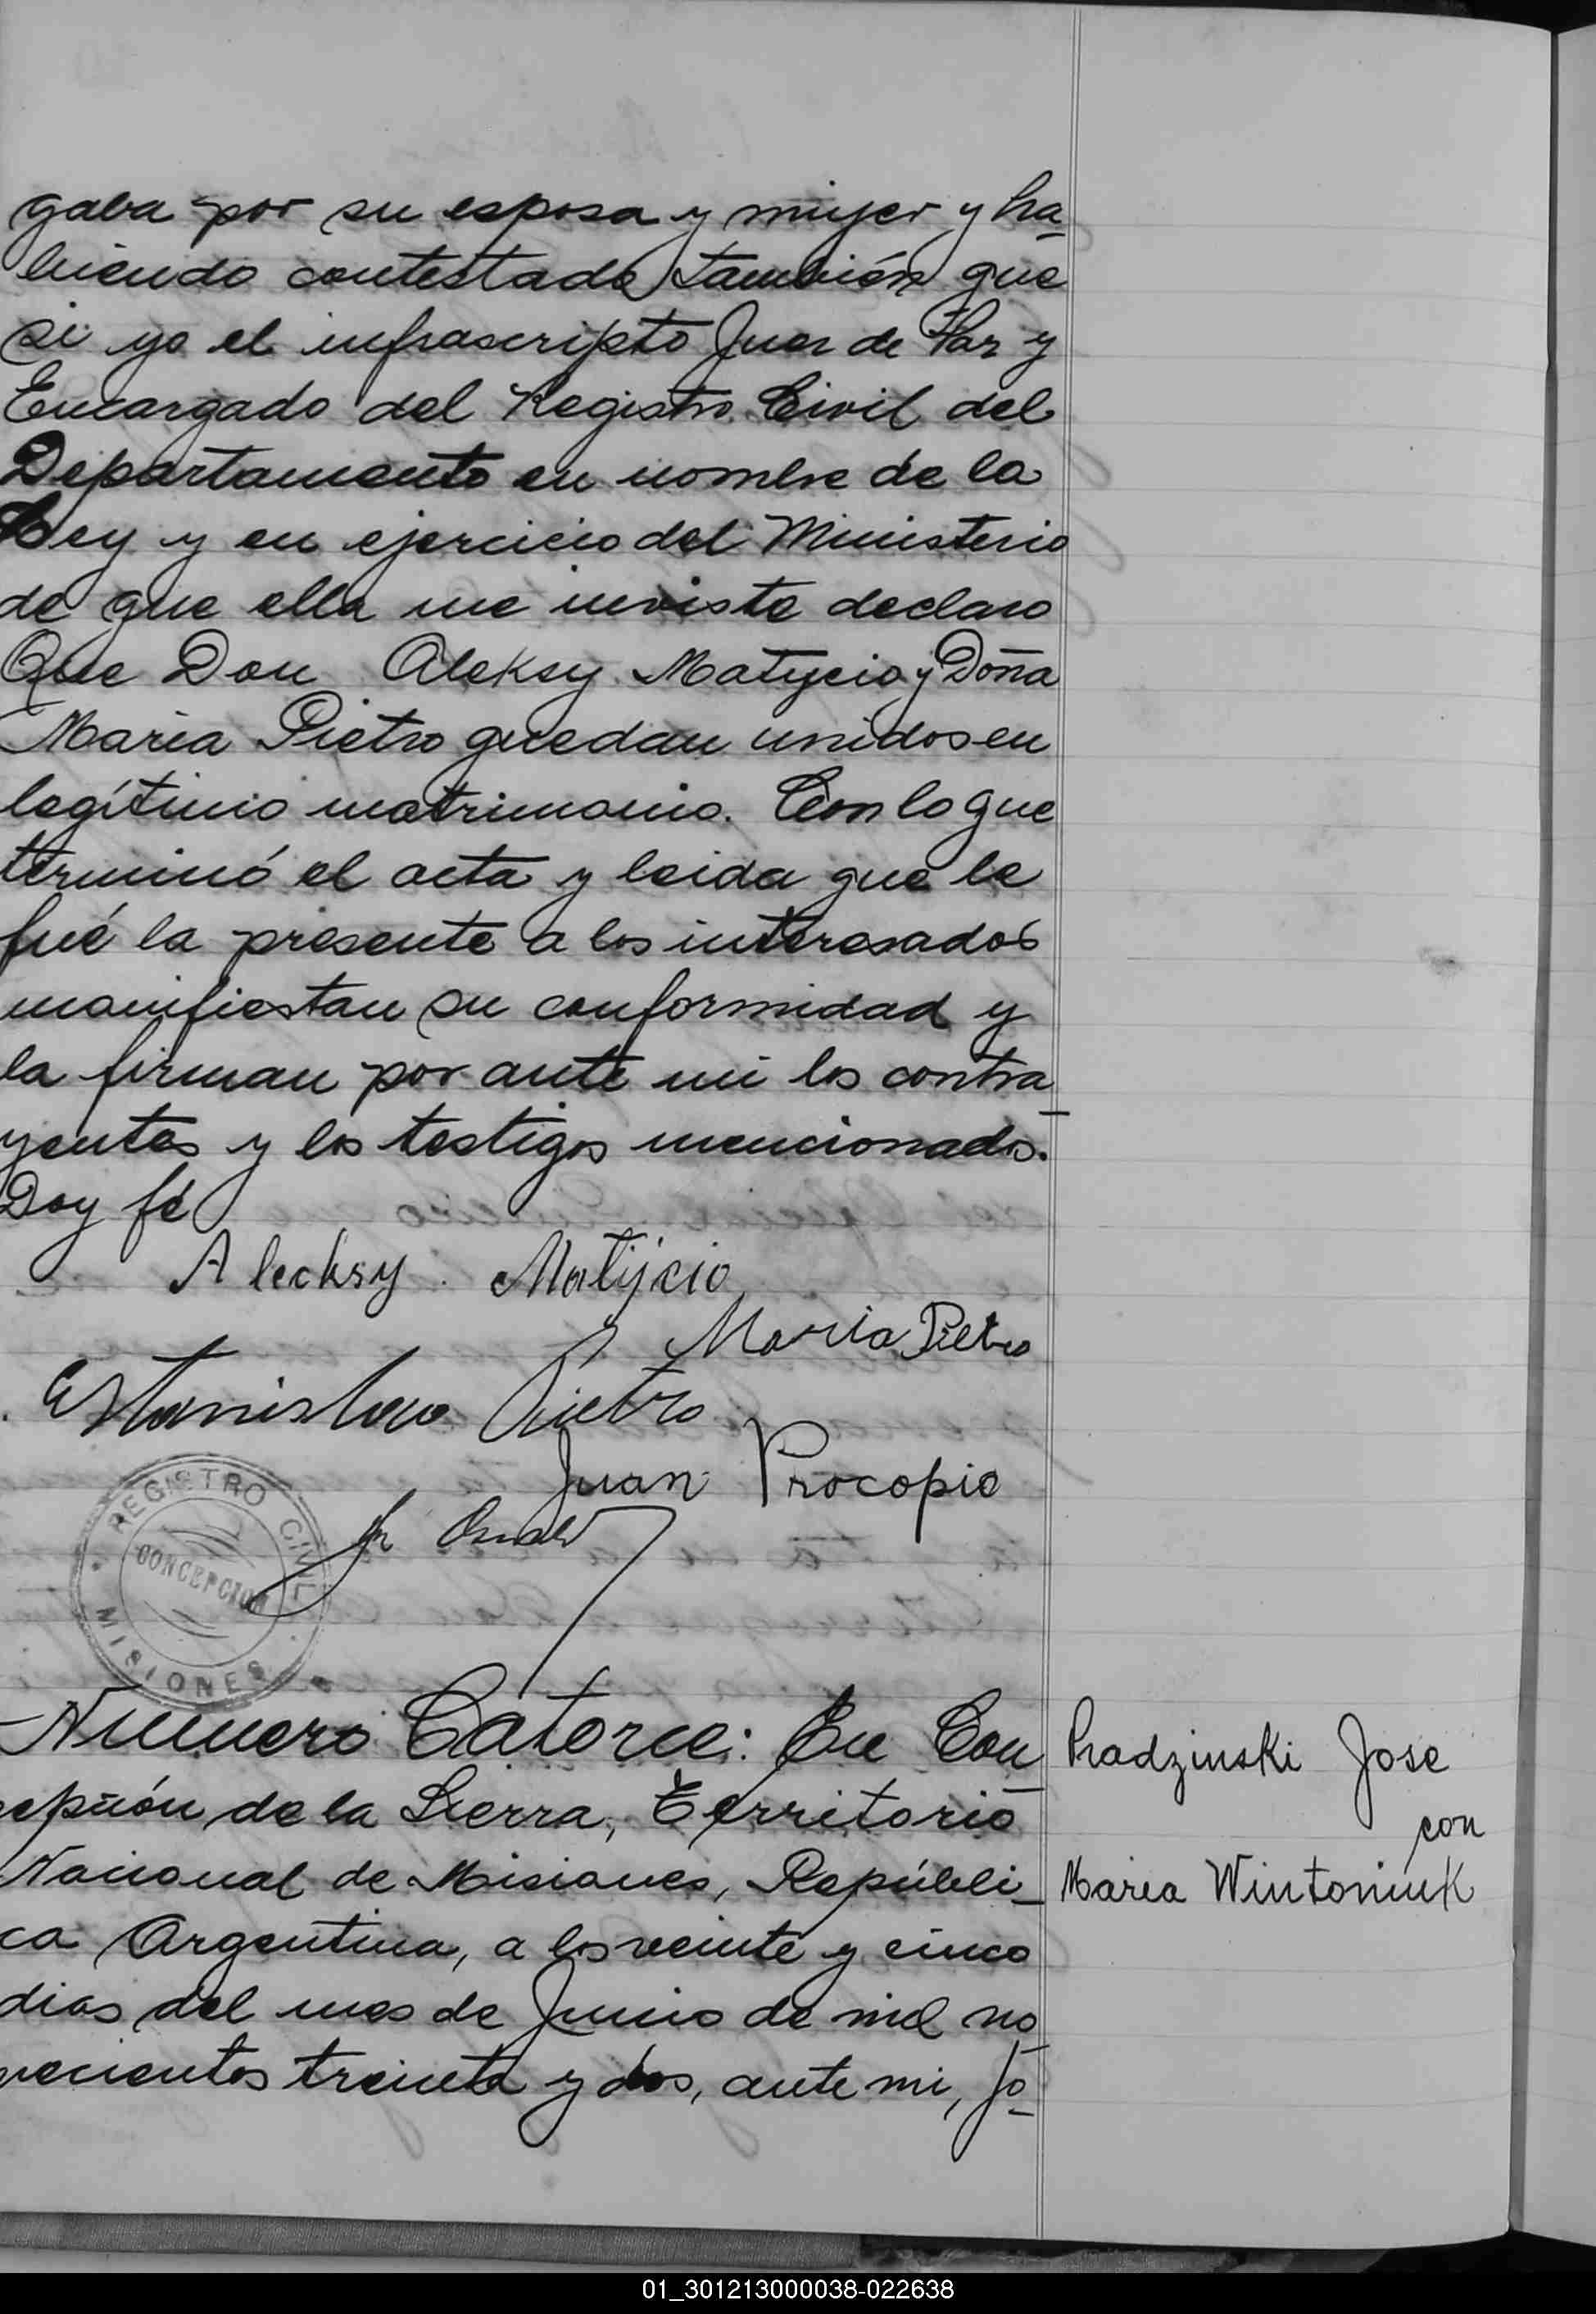 gaba por su esposa y mujer y ha-
biendo contestado también que
si yo el infrascripto Juez de Paz y
Encargado del Registro Civil del
Departamento en nombre de la
Ley y en ejercicio del Ministerio
de que ella me inviste declaro
Que Don Aleksy Matycio y Doña
Maria Pietro quedan unidos en
legítimo matrimonio. Con lo que
terminó el acta y leida que le
fué la presente a los interesados
manifiestan su conformidad y
la firman por ante mi los contra-
yentes y los testigos mencionados.
Doy fé
Alecksy Matijcio
Maria Pietro
Estanislao Pietro
Juan Procopio
REGISTRO CIVIL
CONCEPCION
MISIONES
Número Catorce: En Con-
cepción de la Sierra, Territorio
Nacional de Misiones, Repúbli-
ca Argentina, a los veinte y cinco
dias del mes de Junio de mil no-
vecientos treinta y dos, ante mi, Jo-
Pradzinski Jose
con
Maria Wintoniuk
01_301213000038-022638